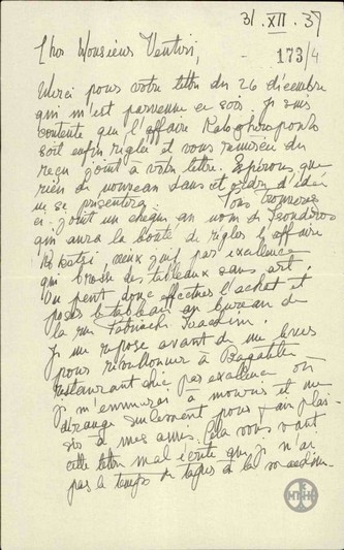 31. XII. 37
173/4
Cher Monsieur Ventiri,
Merci pour votre lettre du 26 décembre
qui m'est parvenue ce soir. Je suis
contente que l'affaire
soit enfin réglée et vous remercie du
reçu joint à votre lettre. Espérons que
rien de nouveau dans cet ordre d'idée
ne se présentera. Vous trouverez
ci-joint un chèque au nom de
qui aura la bonté de régler l'affaire
juif par excellence
qui brosse des tableaux sans art.
On peut donc effectuer l'achat et
poser le tableau au bureau de
la rue
Je me repose avant de me lever
pour réveillonner à Bagatelle
restaurant chic par excellence où
je m'ennuierai à mourir et me
dérange seulement pour faire plai-
sir à mes amis. Cela vous vaut
cette lettre mal écrite que je n'ai
pas le temps de taper à la machine.